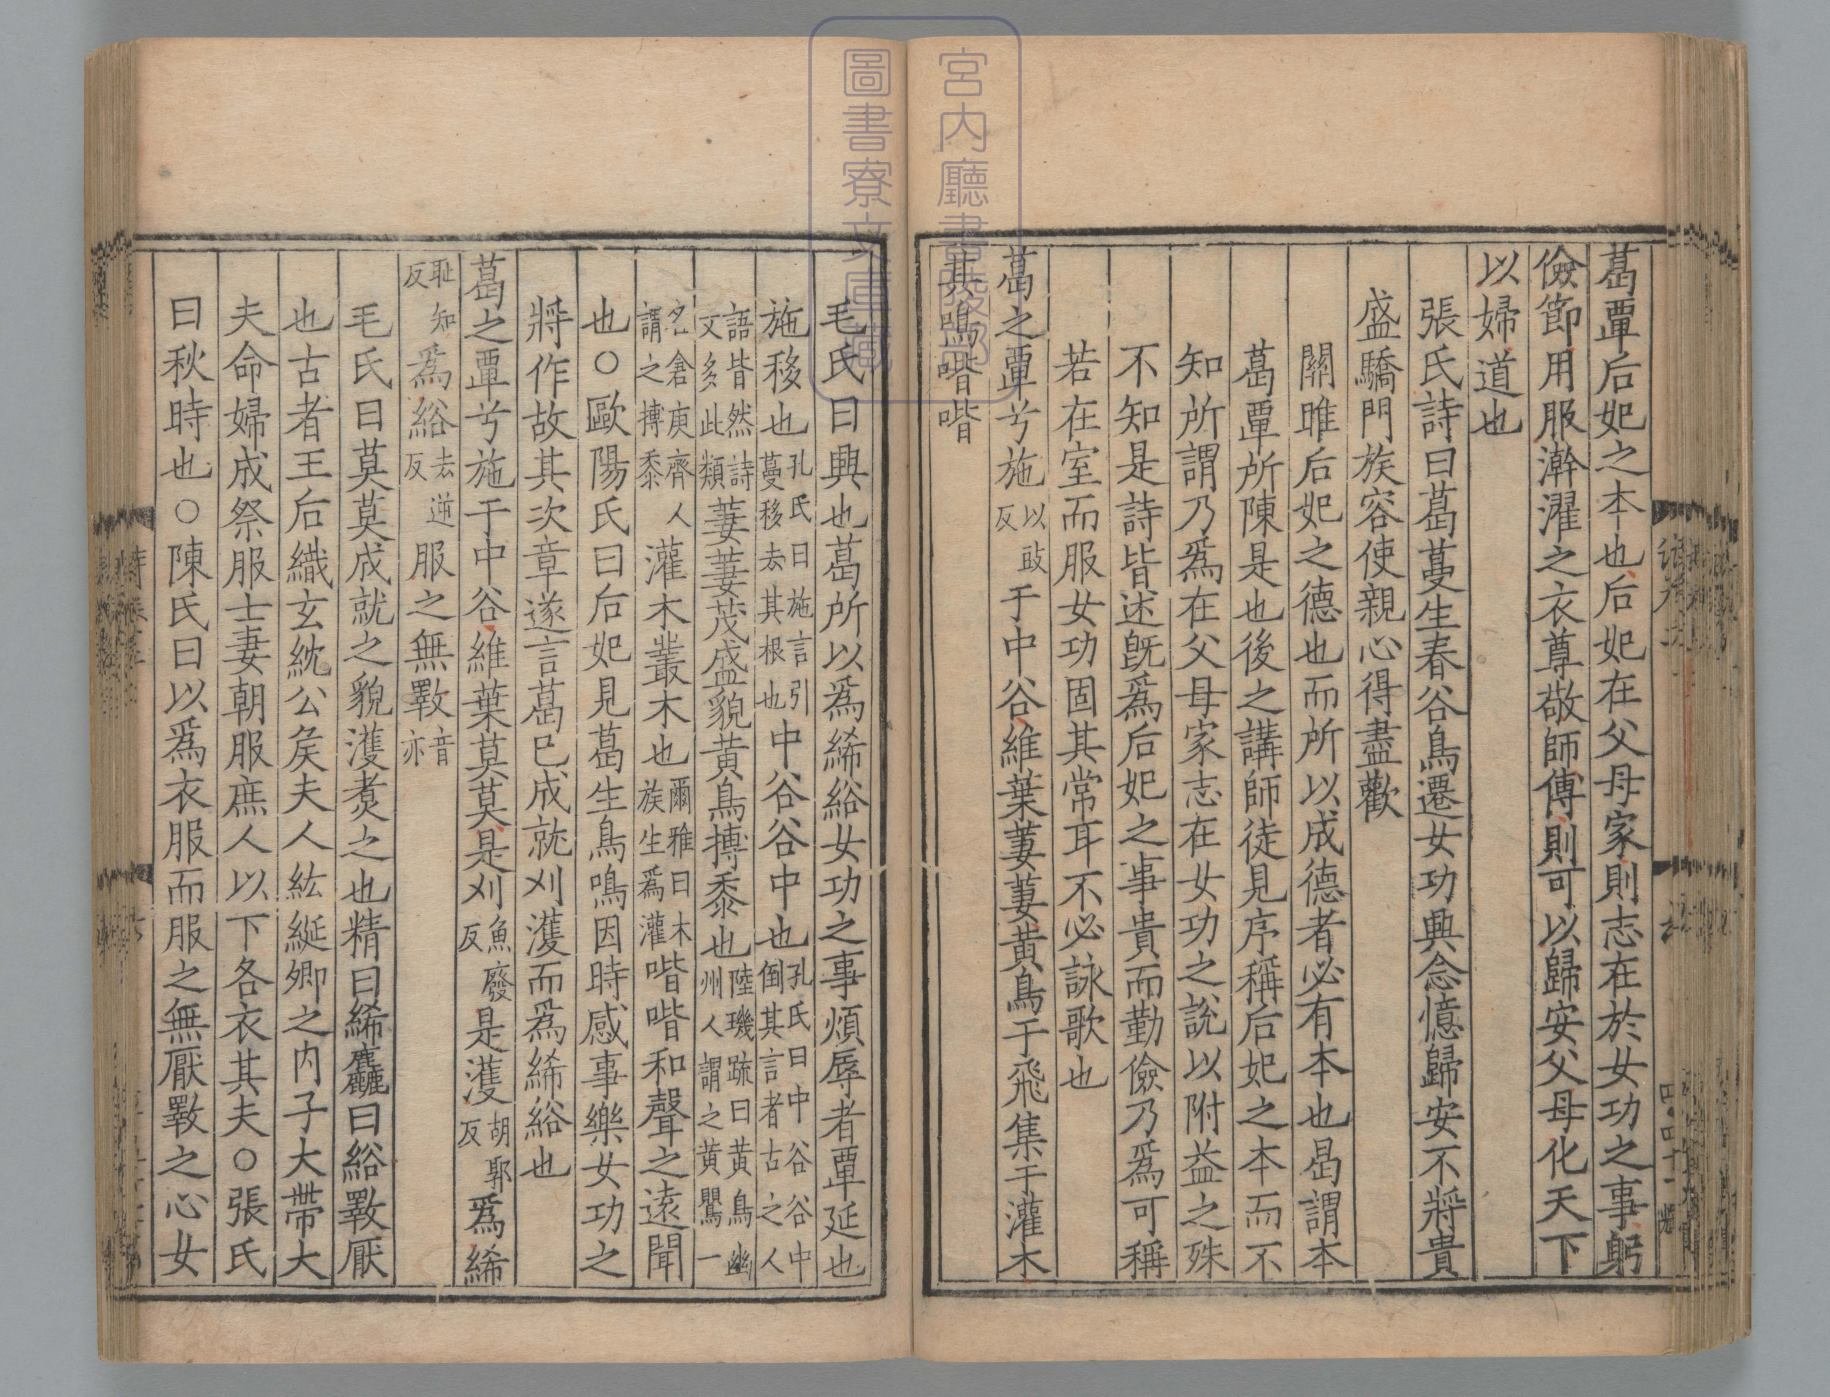 葛覃后妃之本也后妃在父母家則志在於女功之事躬
儉節用服澣濯之衣尊敬師傅則可以歸安父母化天下
以婦道也
張氏詩曰葛蔓生春谷鳥遷女功興念憶歸安不將貴
盛驕門族容使親心得盡歡
關雎后妃之德也而所以成德者必有本也曷謂本
葛覃所陳是也後之講師徒見序稱后妃之本而不
知所謂乃爲在父母家志在女功之說以附益之殊
不知是詩皆述旣爲后妃之事貴而勤儉乃爲可稱
若在室而服女功固其常耳不必詠歌也
葛之覃兮施以豉反于中谷維葉萋萋黃鳥于飛集于灌木
其鳴喈喈
毛氏曰興也葛所以爲絺綌女功之事煩辱者覃延也
施移也孔氏曰施言引蔓移去其根也中谷谷中也孔氏曰中谷谷中倒其言者古之人
語皆然詩文多此類萋萋茂盛貌黃鳥搏黍也陸璣疏曰黃鳥幽州人謂之黃鸎一
名倉庚齊人謂之搏黍灌木叢木也爾雅曰木族生爲灌喈喈和聲之遠聞
也○歐陽氏曰后妃見葛生鳥鳴因時感事樂女功之
將作故其次章遂言葛已成就刈濩而爲絺綌也
葛之覃兮施于中谷維葉莫莫是刈魚廢反是濩胡郭反爲絺
恥知反爲綌去逆反服之無斁音亦
毛氏曰莫莫成就之貌濩煑之也精曰絺麤曰綌斁厭
也古者王后織玄紞公矦夫人紘綖卿之內子大帶大
夫命婦成祭服士妻朝服庶人以下各衣其夫○張氏
曰秋時也○陳氏曰以爲衣服而服之無厭斁之心女
宮內廳書陵部
圖書寮文庫藏